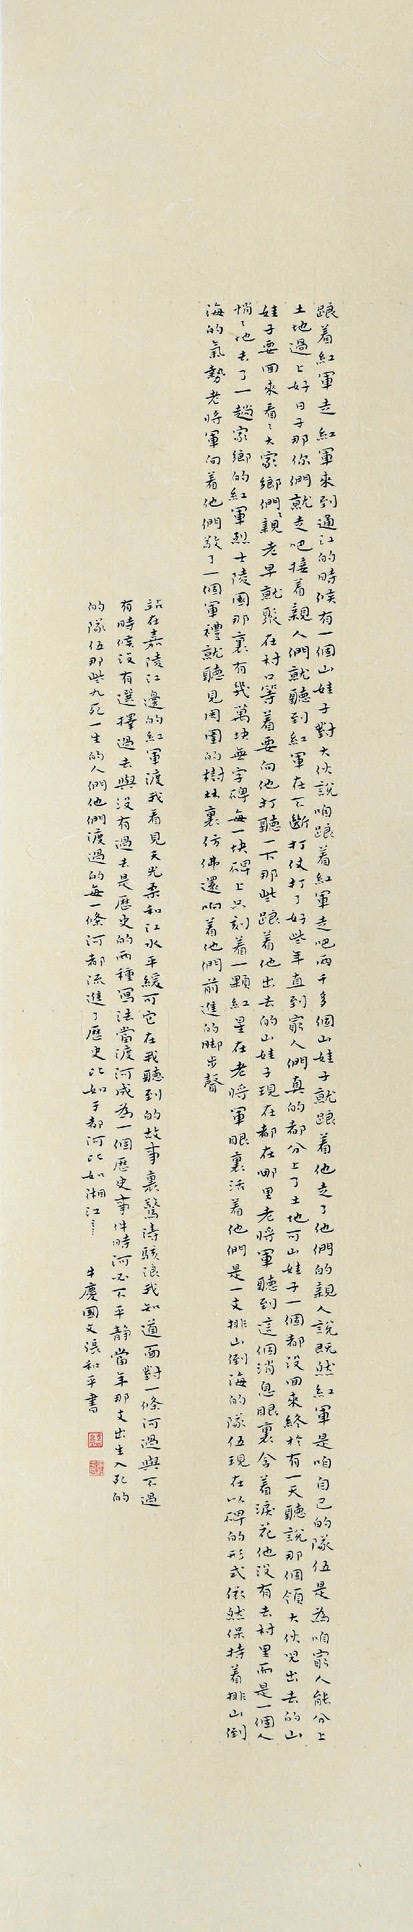 踉着紅軍走紅軍來到通江的時候有一個山娃子對大伙說咱踉着紅軍走吧兩千多個山娃子就踉着他走了他們的親人說既然紅軍是咱自己的隊伍是為咱窮人能分上
土地過上好日子那你們就走吧接着親人們就聽到紅軍在不斷打仗打了好些年直到窮人們真的都分上了土地可山娃子一個都沒回來終於有一天聽說那個領大伙兒出去的山
娃子要回來看看大家鄉親們老早就聚在村口等着要向他打聽一下那些踉着他出去的山娃子現在都在哪里老將軍聽到這個消息眼裏含着淚花他沒有去村里而是一個人
悄悄地去了一趟家鄉的紅軍烈士陵園那裏有幾萬塊無字碑每一塊碑上只刻着一顆紅星在老將軍眼裏活着他們是一支排山倒海的隊伍現在以碑的形式依然保持着排山倒
海的氣勢老將軍向着他們敬了一個軍禮就聽見周圍的樹林裏仿佛還响着他們前進的脚步聲
站在嘉陵江邊的紅軍渡我看見天光柔和江水平緩可它在我聽到的故事裏驚濤駭浪我知道面對一條河過與不過
有時候沒有選擇過去與沒有過去是歷史的兩種寫法當渡河成為一個歷史事件時河必不平靜當年那支出生入死的
的隊伍那些九死一生的人們他們渡過的每一條河都流進了歷史比如于都河比如湘江……
牛慶國文張和平書